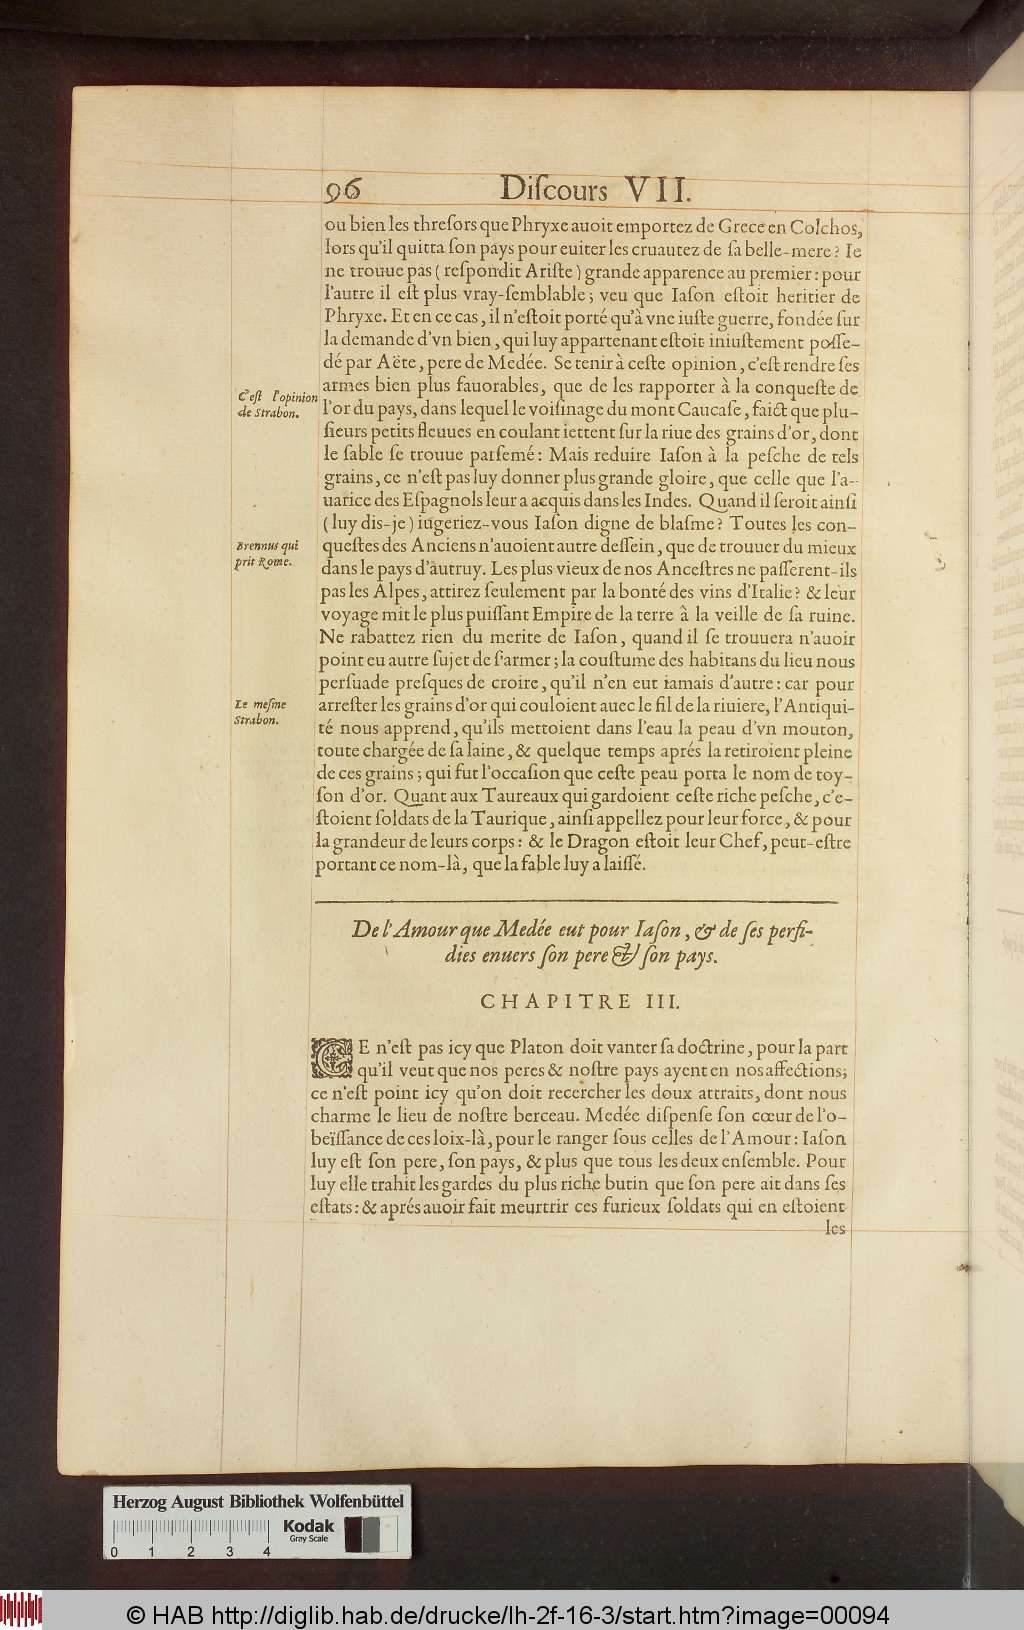 96 Diſcours VII.
ou bien les threſors que Phryxe auoit emportez de Grece en Colchos,
lors qu'il quitta ſon pays pour euiter les cruautez de ſa belle-mere? Ie
ne trouue pas (reſpondit Ariſte) grande apparence au premier: pour
l'autre il eſt plus vray-ſemblable; veu que Iaſon eſtoit heritier de
Phryxe. Et en ce cas, il n'eſtoit porté qu'à vne iuſte guerre, fondée ſur
la demande d'vn bien, qui luy appartenant eſtoit iniuſtement poſſe-
dé par Aëte, pere de Medée. Se tenir à ceſte opinion, c'eſt rendre ſes
armes bien plus fauorables, que de les rapporter à la conqueſte de
C'eſt l'opinion
de Strabon.
l'or du pays, dans lequel le voiſinage du mont Caucaſe, faict que plu-
ſieurs petits fleuues en coulant iettent ſur la riue des grains d'or, dont
le ſable ſe trouue parſemé: Mais reduire Iaſon à la peſche de tels
grains, ce n'eſt pas luy donner plus grande gloire, que celle que l'a-
uarice des Eſpagnols leur a acquis dans les Indes. Quand il ſeroit ainſi
(luy dis-je) iugeriez-vous Iaſon digne de blaſme? Toutes les con-
Brennus qui
prit Rome.
queſtes des Anciens n'auoient autre deſſein, que de trouuer du mieux
dans le pays d'autruy. Les plus vieux de nos Anceſtres ne paſſerent-ils
pas les Alpes, attirez ſeulement par la bonté des vins d'Italie? & leur
voyage mit le plus puiſſant Empire de la terre à la veille de ſa ruine.
Ne rabattez rien du merite de Iaſon, quand il ſe trouuera n'auoir
point eu autre ſujet de s'armer; la couſtume des habitans du lieu nous
perſuade preſques de croire, qu'il n'en eut iamais d'autre: car pour
Le meſme
Strabon.
arreſter les grains d'or qui couloient auec le fil de la riuiere, l'Antiqui-
té nous apprend, qu'ils mettoient dans l'eau la peau d'vn mouton,
toute chargée de ſa laine, & quelque temps aprés la retiroient pleine
de ces grains; qui fut l'occaſion que ceſte peau porta le nom de toy-
ſon d'or. Quant aux Taureaux qui gardoient ceſte riche peſche, c'e-
ſtoient ſoldats de la Taurique, ainſi appellez pour leur force, & pour
la grandeur de leurs corps: & le Dragon eſtoit leur Chef, peut-eſtre
portant ce nom-là, que la fable luy a laiſſé.
De l'Amour que Medée eut pour Iaſon, & de ſes perfi-
dies enuers ſon pere & ſon pays.
CHAPITRE III.
CE n'eſt pas icy que Platon doit vanter ſa doctrine, pour la part
qu'il veut que nos peres & noſtre pays ayent en nos affections;
ce n'eſt point icy qu'on doit recercher les doux attraits, dont nous
charme le lieu de noſtre berceau. Medée diſpenſe ſon cœur de l'o-
beïſſance de ces loix-là, pour le ranger ſous celles de l'Amour: Iaſon
luy eſt ſon pere, ſon pays, & plus que tous les deux enſemble. Pour
luy elle trahit les gardes du plus riche butin que ſon pere ait dans ſes
eſtats: & aprés auoir fait meurtrir ces furieux ſoldats qui en eſtoient
les
Herzog August Bibliothek Wolfenbüttel
Kodak
Gray Scale
0 1 2 3 4
© HAB http://diglib.hab.de/drucke/lh-2f-16-3/start.htm?image=00094